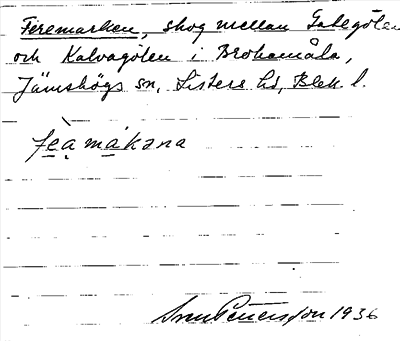 Feremarken, skog mellan Gabegölen
och Kalvagölen i Brokamåla,
Jämshögs sn, Listers hd, Blek. l.
feamakana
Sven Petersson 1936